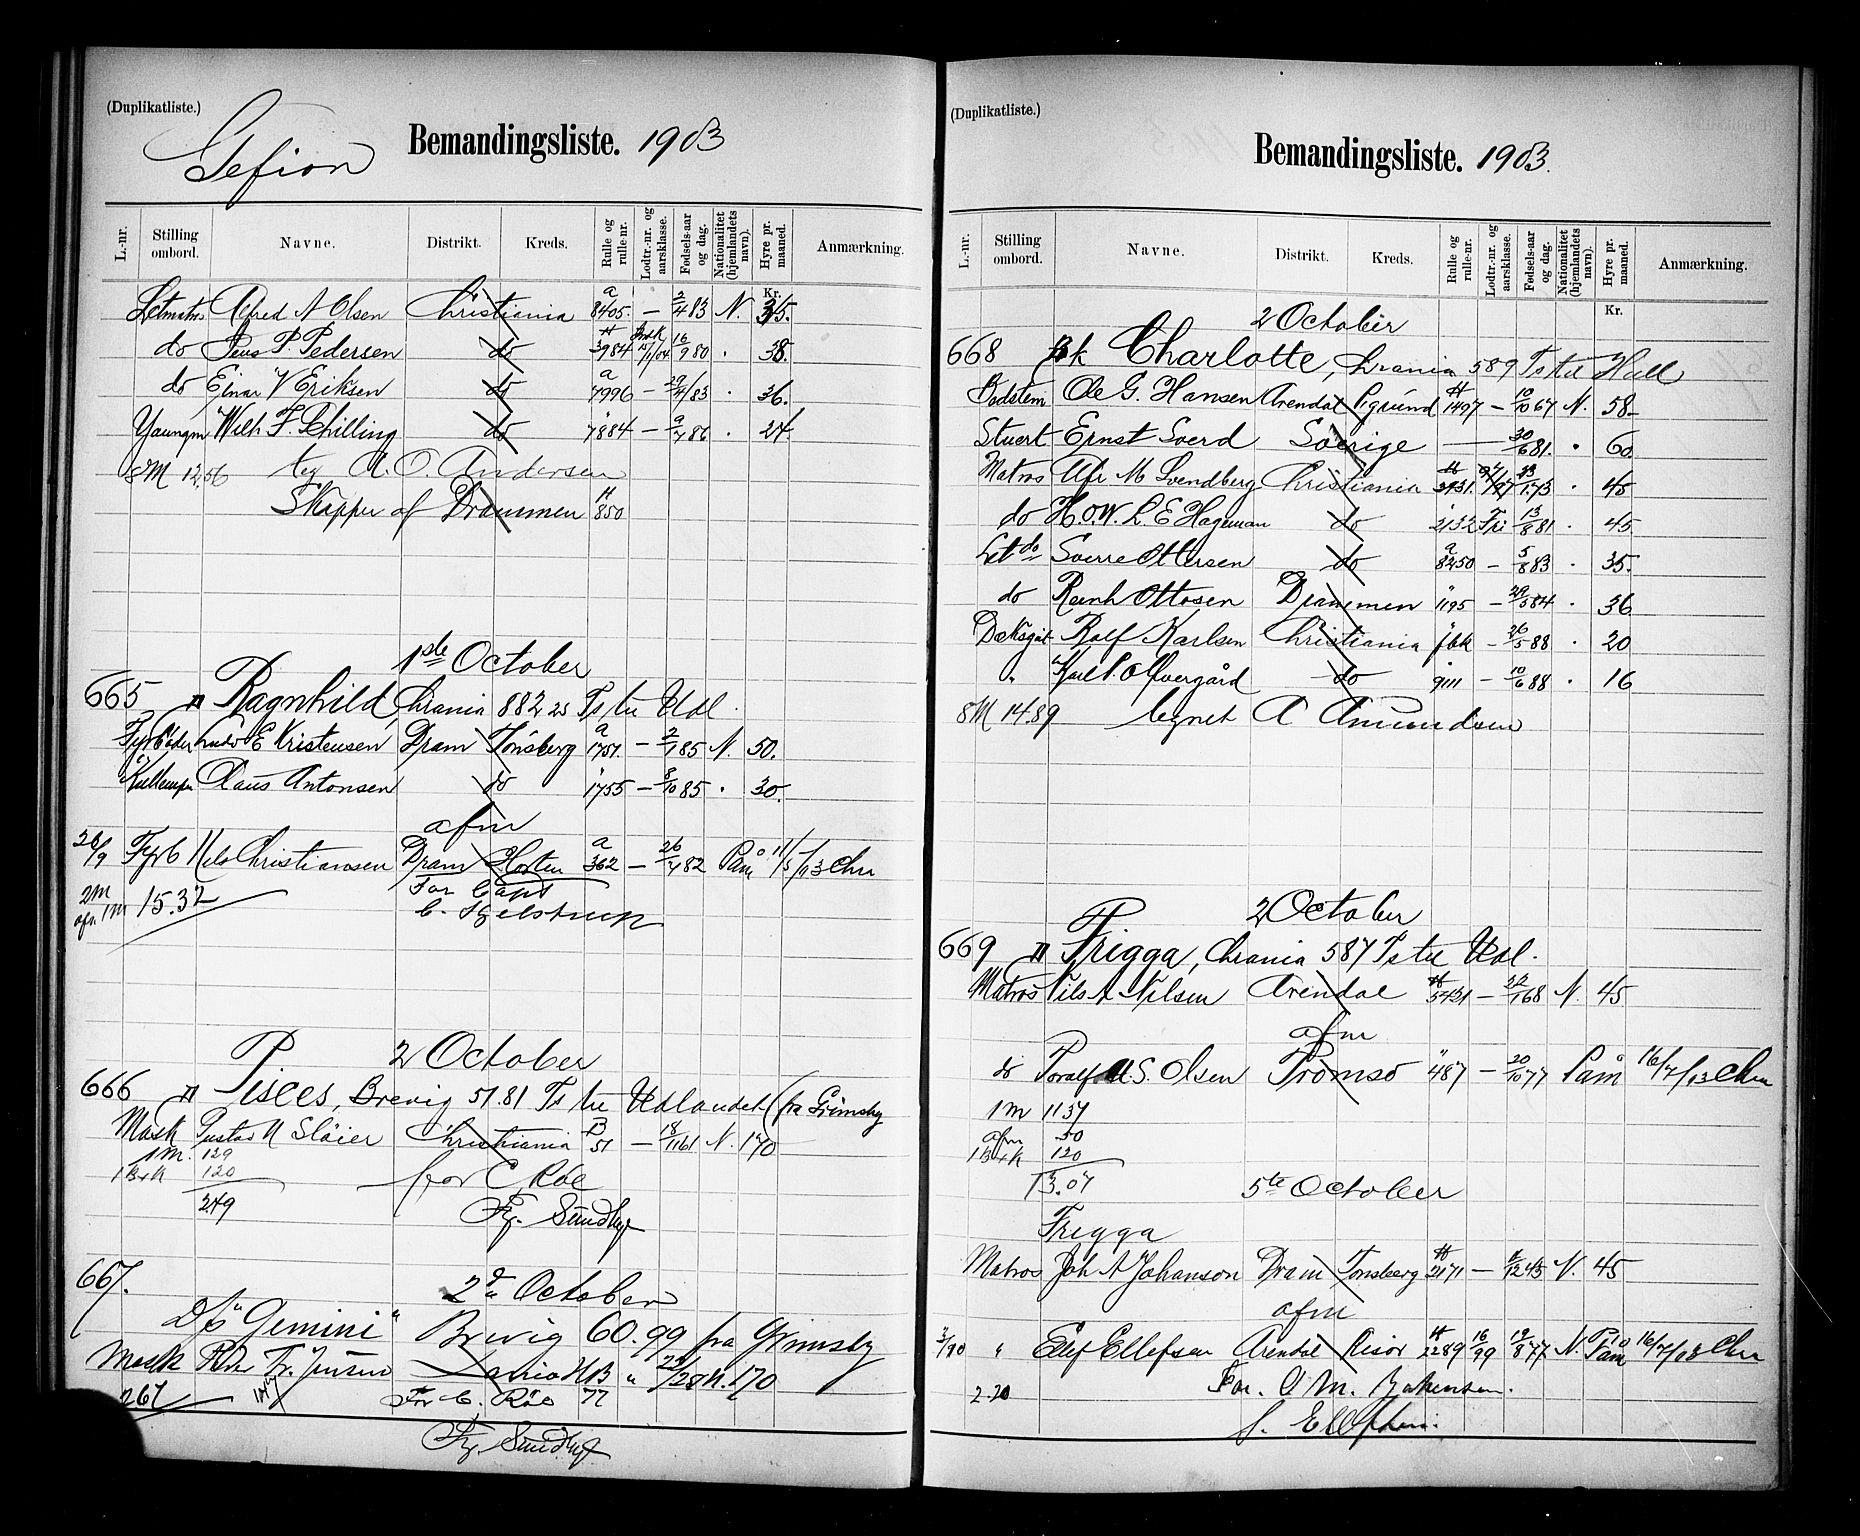 (Duplikatliste.)
Gefion
Bemandingsliste. 1903
L.-nr. Stilling ombord. Navne. Distrikt. Kreds. Rulle og rulle-nr. Lodtr.-nr. og aarsklasse. Fødsels-aar og dag. Nationalitet (hjemlandets navn). Hyre pr. maaned. Anmærkning.
Kr.
Letmatros Alfred A Olsen Christiania a 8405. — 2/4 83 N. 35.
do Jens P. Pedersen do 3984 16/9 80 . 38.
do Einar V Eriksen do a 7996 — 29/4/83 . 36.
Youngm Wilh F. Schilling do 7884 — 9/7 86 . 24.
8M 12,56 teg A. O. Andersen
Skipper af Drammen H 850
1ste October
665 Ragnhild, Chrania 882 25 Ts til Udl.
Fyrbøder Ludv E Kristensen Dram Tønsberg a 1751. — 2/7 85 N. 50.
Kullemper Claus Antonsen do " 1755 — 8/10 85 . 30.
afm
26/9 Fyrb Nils Christiansen Dram Horten a 362 — 26/7 82 Paam 11/5/03 Chra
2M 15.32 For Capt
afm 1M C. Gjelstrup
2 October
666 Pisces, Brevig 51.81 Ts til Udlandet (fra Grimsby
Mask Gustav A Sløier Christiania B 51 — 18/11 61 N. 170
1M. 129
1B+K 120 for C. Röe
249 Fr. Sundbye
667. 2den October
D/S "Gemini" Brevig 60.99 fra Grimsby
Mask Fr. Jensen N. 170
267 For C. Röe 77
Fr. Sundbye
(Duplikatliste.)
Bemandingsliste. 1903.
L.-nr. Stilling ombord. Navne. Distrikt. Kreds. Rulle og rulle-nr. Lodtr.-nr. og aarsklasse. Fødsels-aar og dag. Nationalitet (hjemlandets navn). Hyre pr. maaned. Anmærkning.
Kr.
2 October
668 Bk Charlotte, Chrania 589 Ts til Hull
Bodstem Ole G. Hansen Arendal Lgrund H 1497 — 10/10 67 N. 58
Stuert Ernst Sverd Sverige — 30/6 81. " 60
Matros Alfr M Svendberg Christiania 3931. 73 . 45
do H.O.W. L. E Hageman do 2132 Fri 13/9 81 . 45.
Let do Sverre Ottersen do a 8250 — 5/8 83 . 35.
do Reinh Ottosen Drammen " 1195 — 29/5 84 . 36
Dæksgut Rolf Karlsen Christiania — 26/5 88 . 20
" Karl P. Olfvergård do 9111 — 10/6 88 . 16
8M 14.89 tegnet A Amundsen
2 October
669 Frigga, Chrania 587 Ts til Udl.
Matros Nils A Nilsen Arendal H 5421 — 22/1 68 N. 45
afm
do Toralf A. S. Olsen Tromsø " 487 — 20/10 77 Paam 16/7/03 Chra
1M 1137
afm 50
1B+K 120
13.07 5te October
Frigga
Matros Joh A Johanson Dram Tønsberg H 2171 — /12 45 N. 45
afm
3/90 " Elef Ellefsen Arendal Risör H 2289 16/99 19/8 77 N. Paam 16/7/03 Chra
2.20 For. O M.
S. Ellefsen.